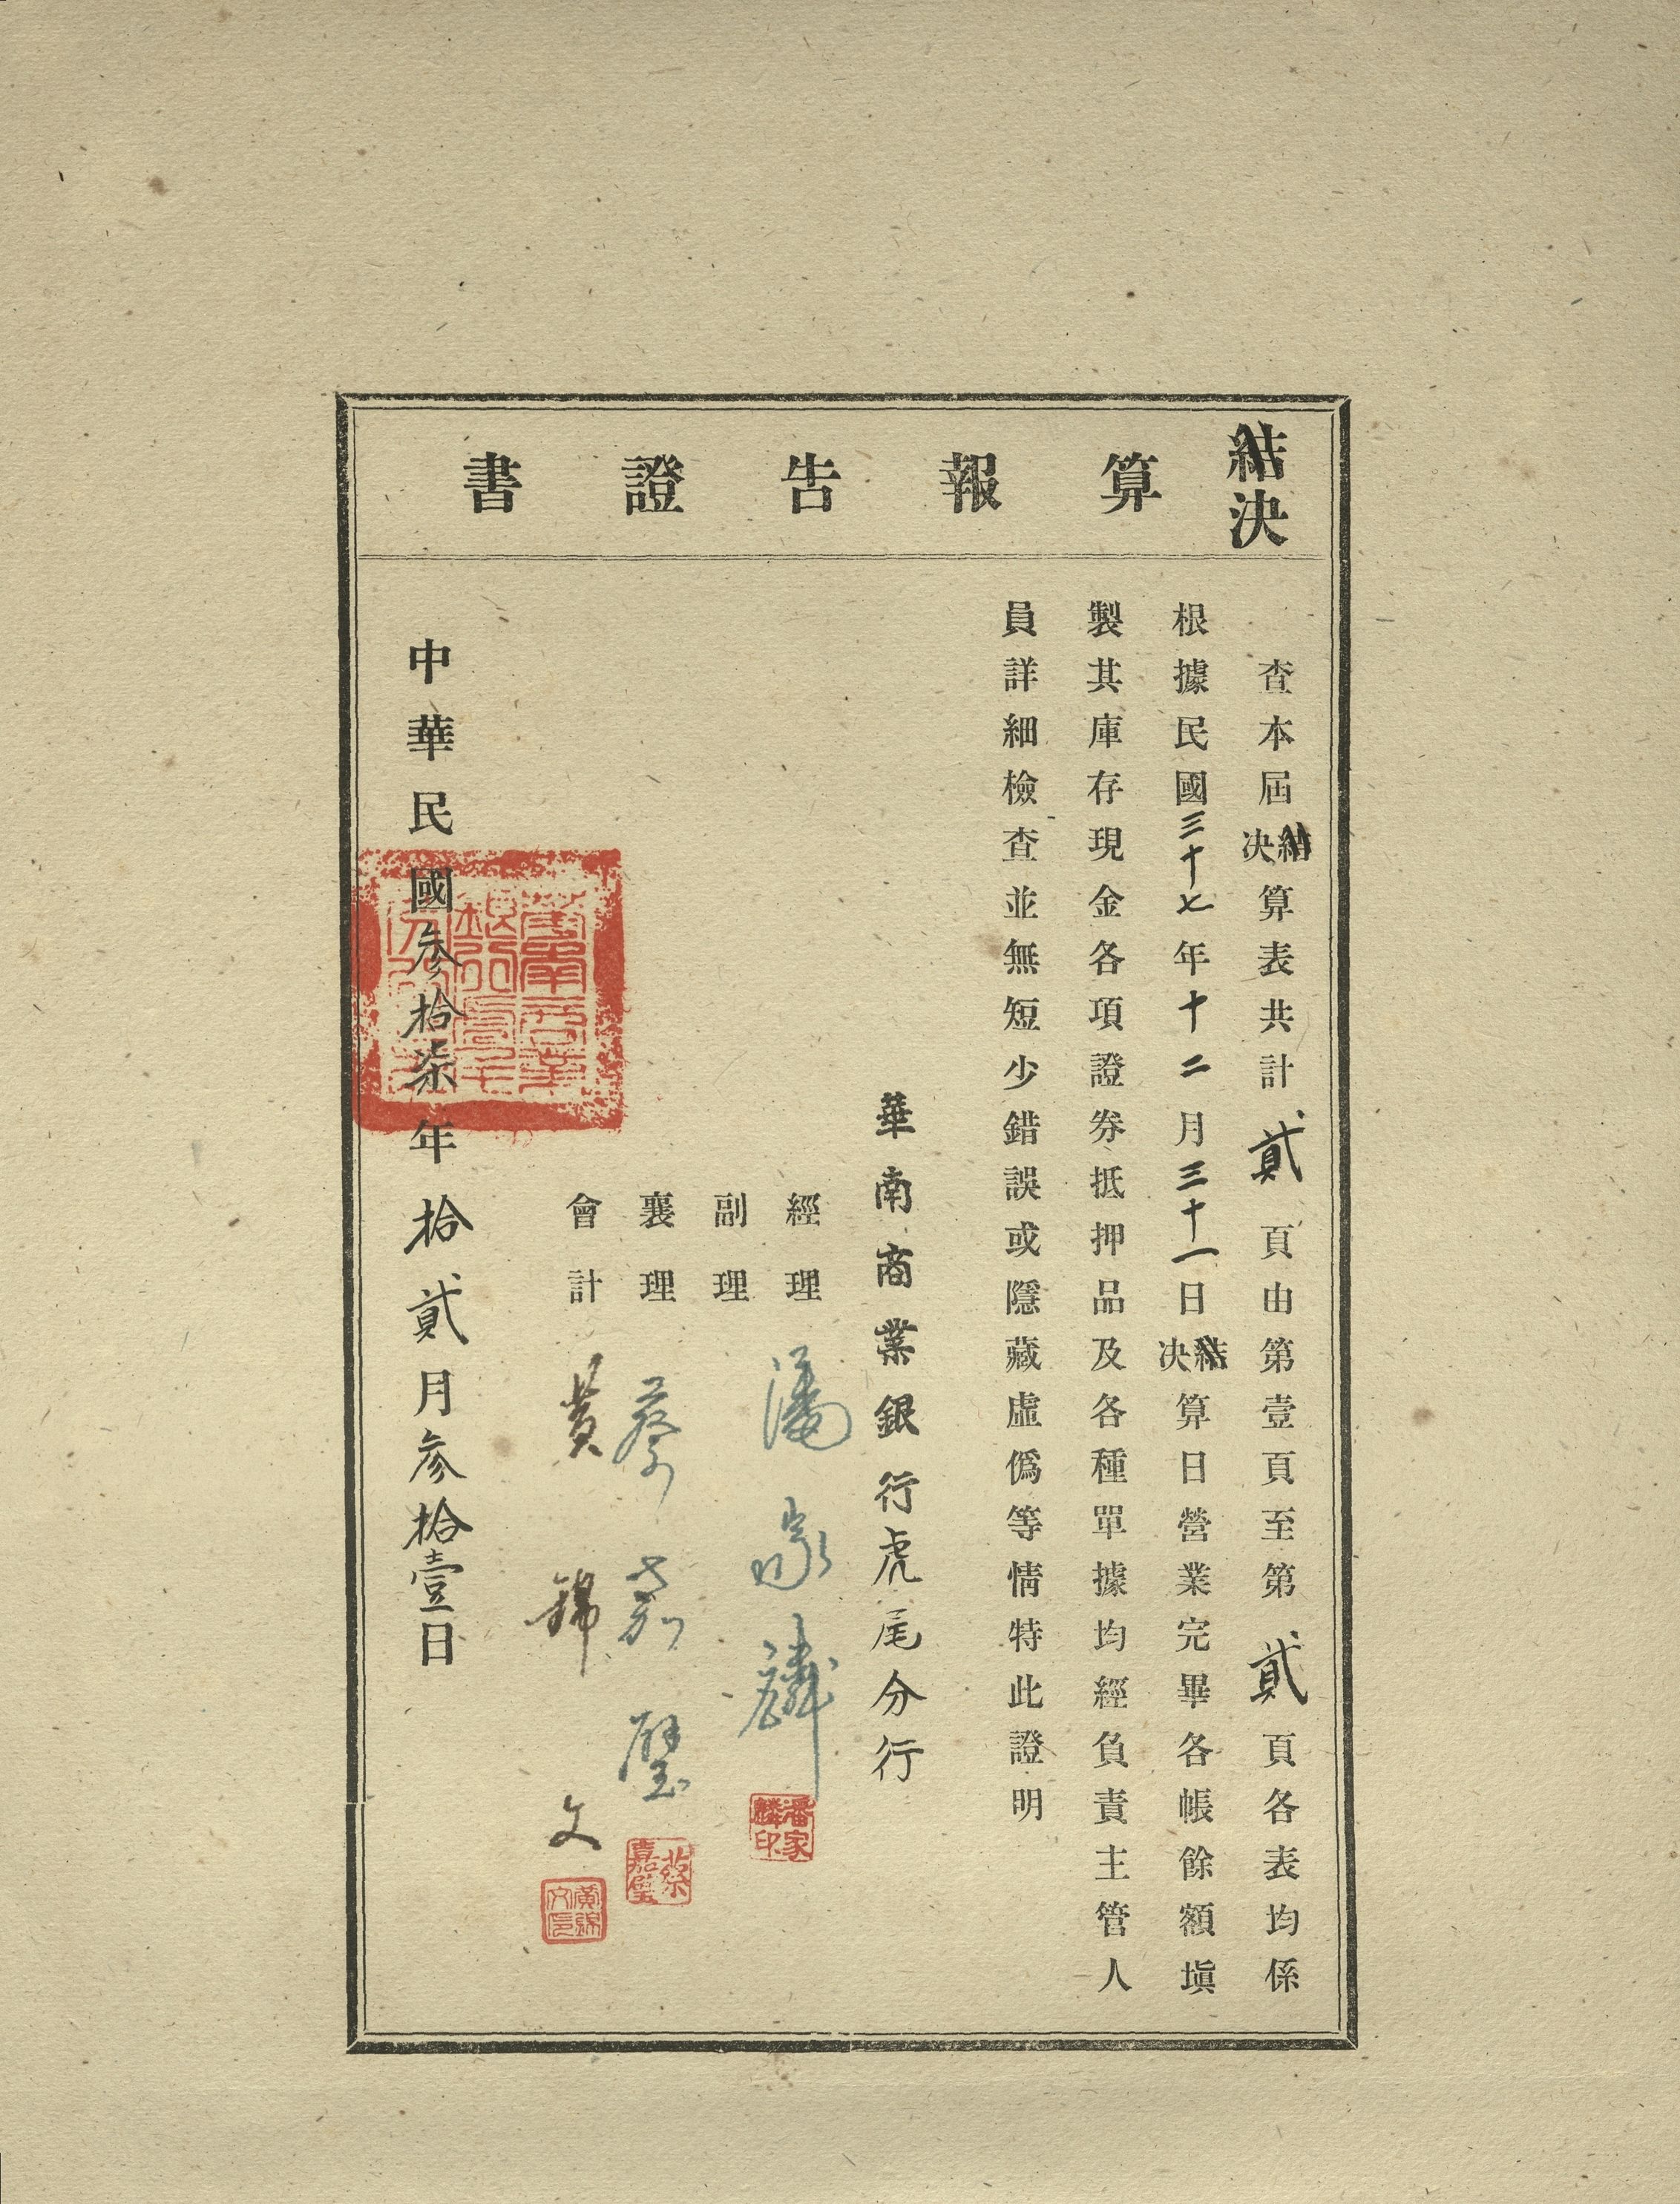 結決算報告證書
查本屆結決算表共計貳頁由第壹頁至第貳頁各表均係
根據民國三十七年十二月三十一日結決算日營業完畢各帳餘額塡
製其庫存現金各項證券抵押品及各種單據均經負責主管人
員詳細檢查並無短少錯誤或隱藏虛僞等情特此證明
華南商業銀行虎尾分行
經理 潘家麟
潘家麟印
副理
襄理 蔡嘉璧
蔡嘉璧
會計 黄錦文
黃錦文印
中華民國叁拾柒年拾貳月叁拾壹日